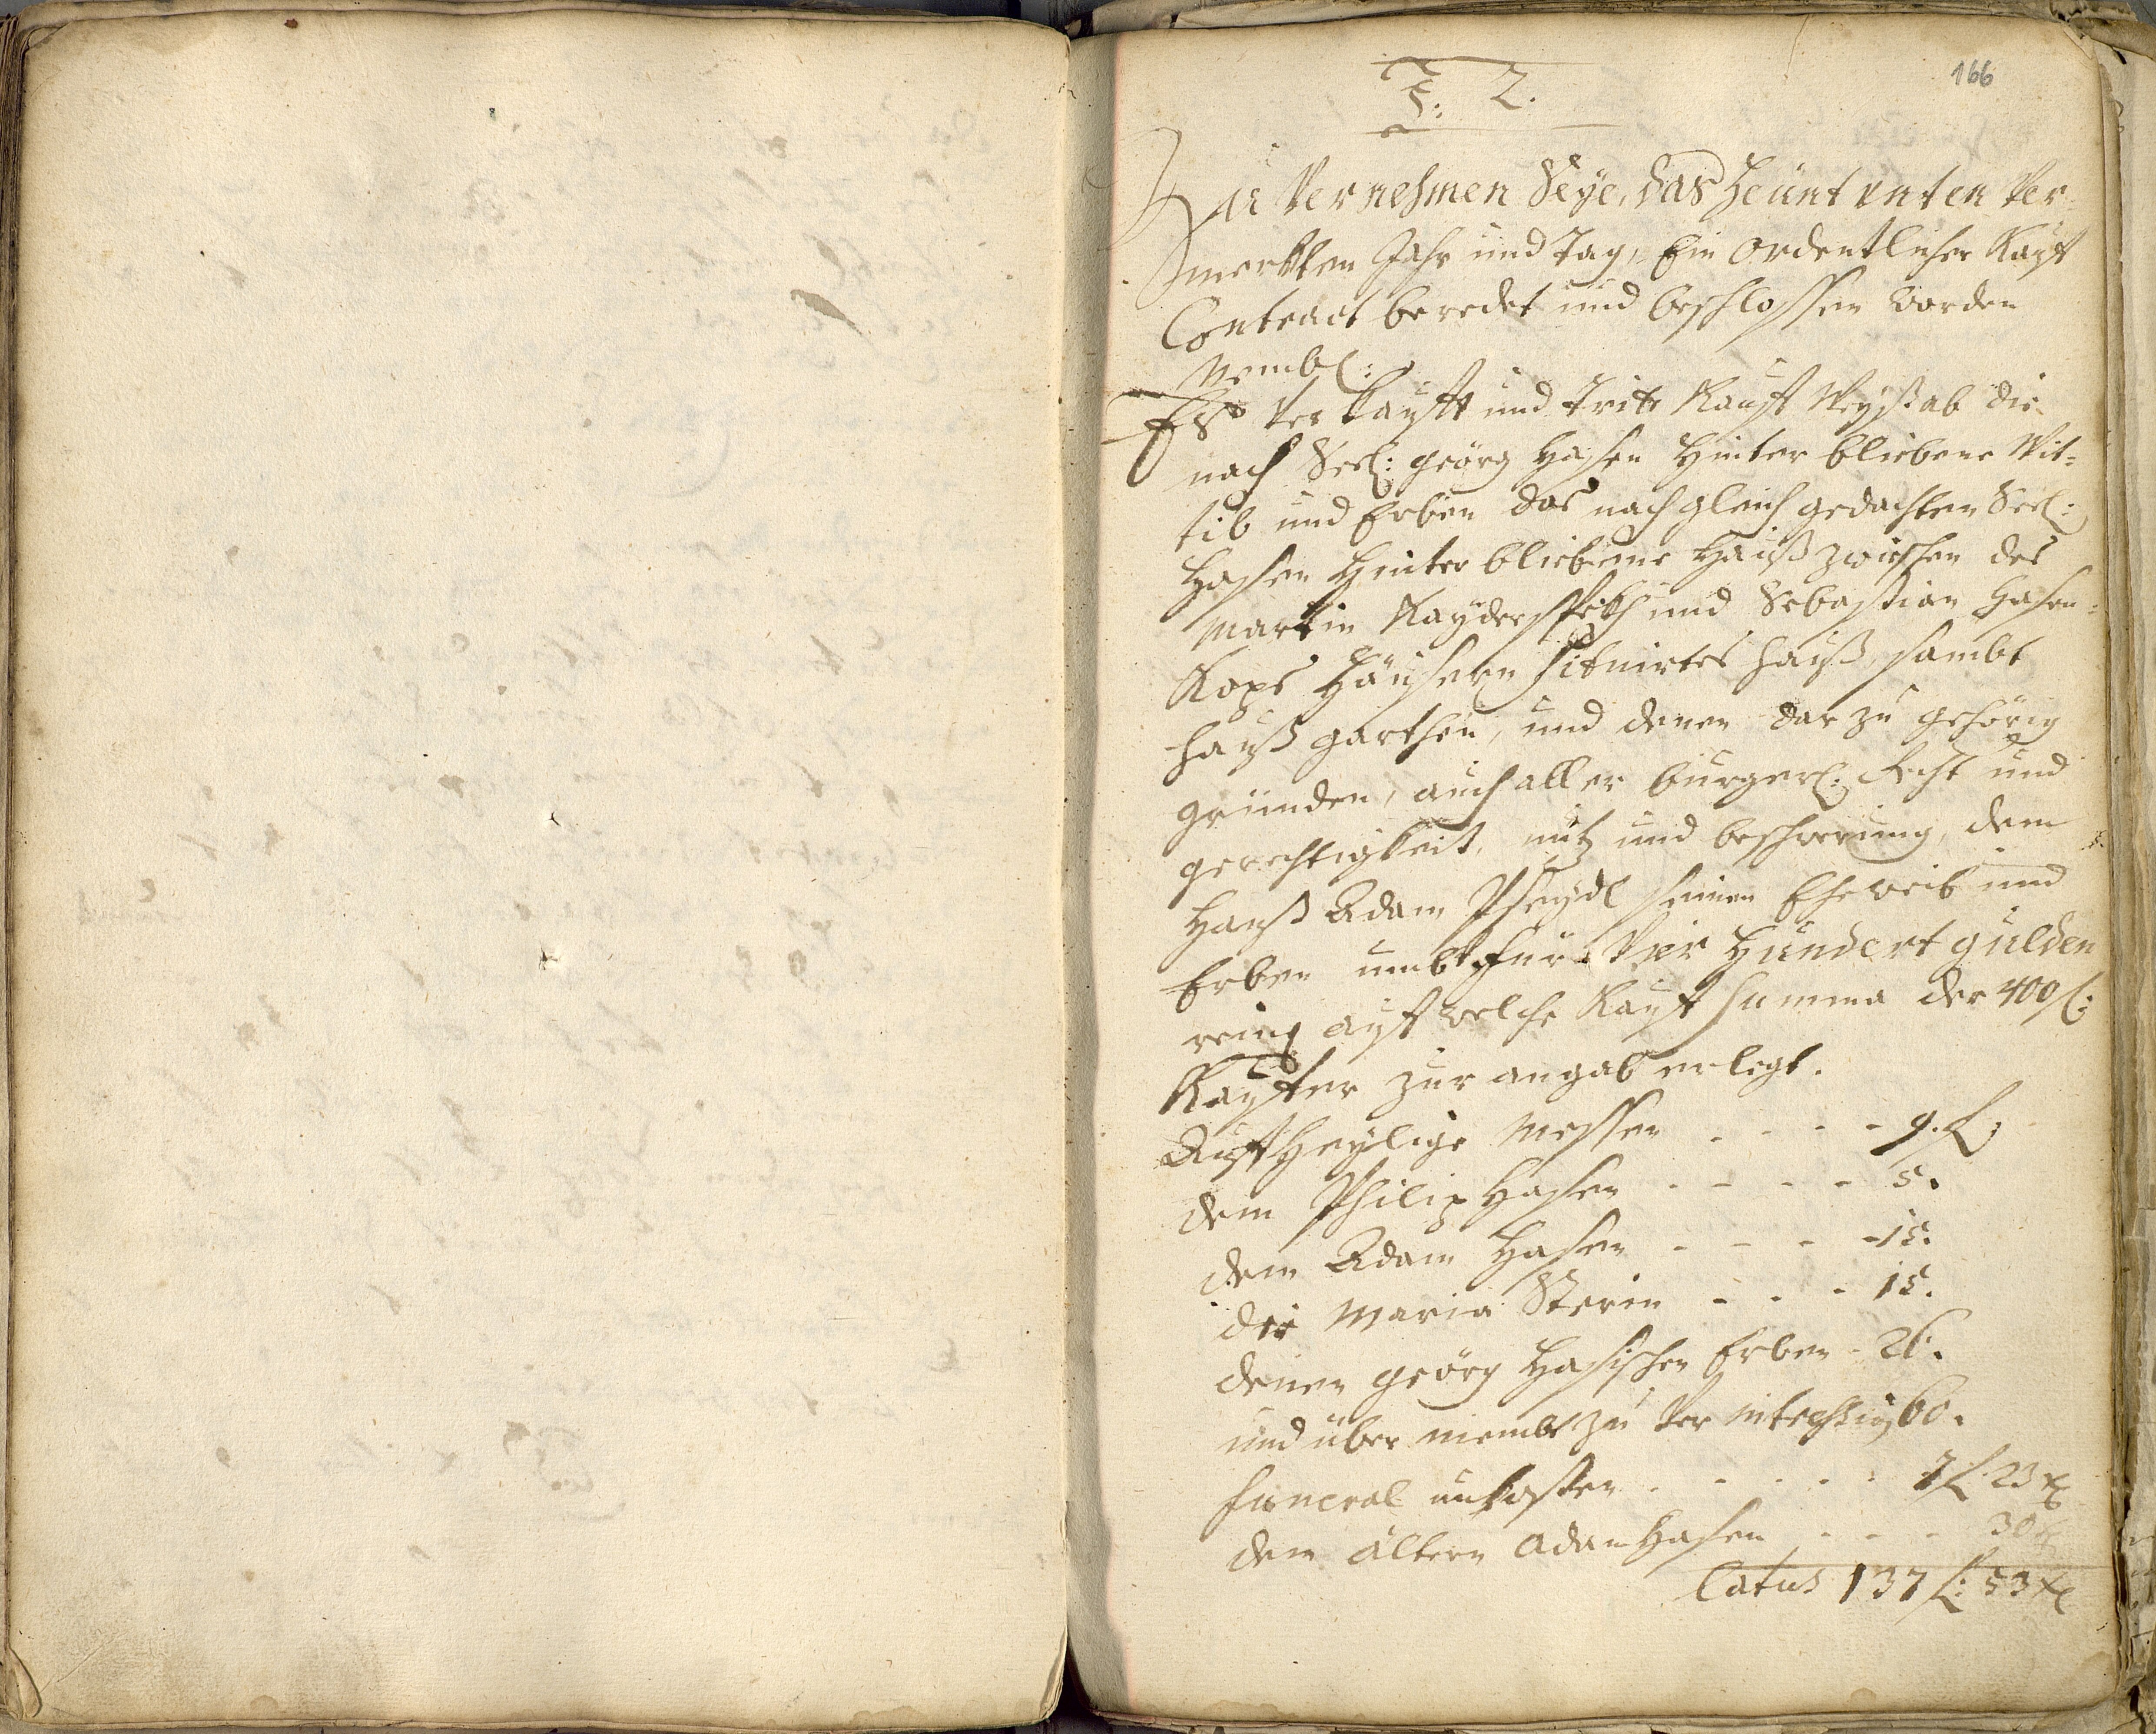 166
F: 2.
Zu Vernehmen Seÿe, das heünt vnten Ver
merkten Jahr und Tag, Ein Ordentlicher Kauf
Contract beredet und beschlossen worden
Nembl:
Es Verkaufft und Tritt Kaufs Weyß ab die
nach Seel: georg Hasen Hinterbliebene Wit=
tib und Erben das nach gleich gedachten Seel:
Hasen Hinterbliebene Hauß zwischen des
Martin und Sebastian Hasen=
Kops Häusern situirtes Hauß, sambt
Hauß garthen, und denen darzu gehörig
gründen, auch aller burgerl: Recht und
gerechtigkeit, nutz und beschwerung, dem
Hanß Adam seinen Eheweib und
Erben umb für Vier Hundert gulden
rein: auf welche Kauf Summa der 400 f:
Kauffer zur angab erlegt.
Auff Heÿlige Messen - - - - 9. f:
dem Philip Hasen - - - - 5.
dem Adam Hasen - - - - 15.
der Maria - - - 15.
denen georg Hasischen Erben - 26.
und über niembt zu Ver 60.
funeral unkosten - - - - 7 f: 23 x
dem ältern Adam Hasen - - - 30 x
Latus 137 f: 53 x